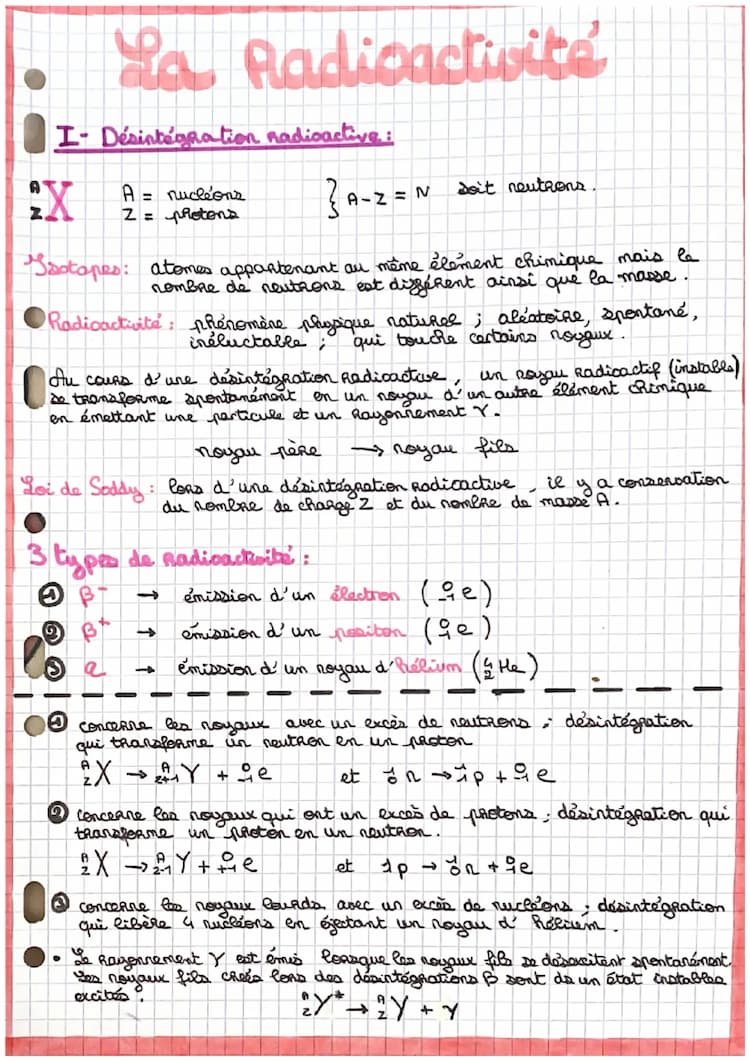 La Radioactivité
I- Désintégration radioactive :
A/Z X A = nucléons } A-Z = N soit neutrons.
Z = protons
Isotopes : atomes appartenant au même élément chimique mais le
nombre de neutrons est différent ainsi que la masse.
Radioactivité : phénomène physique naturel ; aléatoire, spontané,
inéluctable ; qui touche certains noyaux.
Au cours d'une désintégration radioactive, un noyau radioactif (instable)
se transforme spontanément en un noyau d'un autre élément chimique
en émettant une particule et un rayonnement γ.
noyau père → noyau fils
Loi de Soddy : lors d'une désintégration radioactive, il y a conservation
du nombre de charge Z et du nombre de masse A.
3 types de radioactivité :
① β⁻ → émission d'un électron (⁰₋₁e)
② β⁺ → émission d'un positon (⁰₁e)
③ α → émission d'un noyau d'hélium (⁴₂He)
① concerne les noyaux avec un excès de neutrons ; désintégration
qui transforme un neutron en un proton
A/Z X → A/Z+1 Y + ⁰₋₁e et ¹₀n → ¹₁p + ⁰₋₁e
② concerne les noyaux qui ont un excès de protons ; désintégration qui
transforme un proton en un neutron.
A/Z X → A/Z-1 Y + ⁰₁e et ¹₁p → ¹₀n + ⁰₁e
③ concerne les noyaux lourds avec un excès de nucléons ; désintégration
qui libère 4 nucléons en éjectant un noyau d'hélium.
• Le rayonnement γ est émis lorsque les noyaux fils se désexcitent spontanément.
Les noyaux fils créés lors des désintégrations β sont ds un état instables
excités :
A/Z Y* → A/Z Y + γ